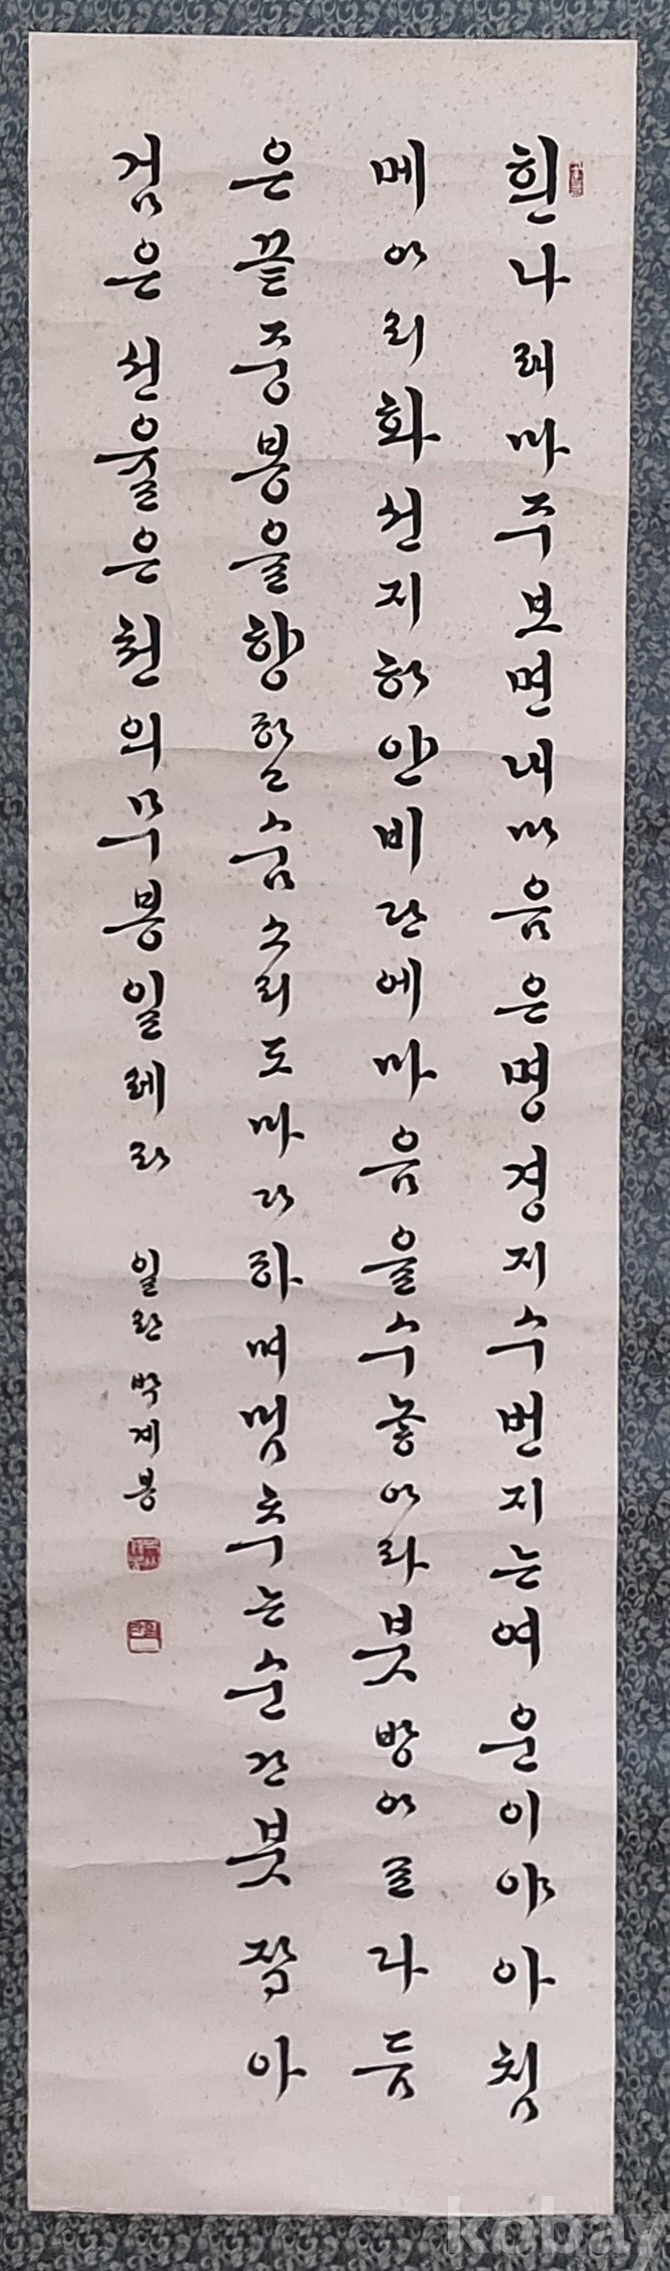 흰나래마주보면내마음은명경지수번지는여운이야아침
메아리화선지하얀비단에마음을수놓아라붓방아글다듬
은끝중봉을향한숨소리도마다하며멈추는순간붓잡아
검은선율은천의무봉일레라 일란 박계봉
kobay